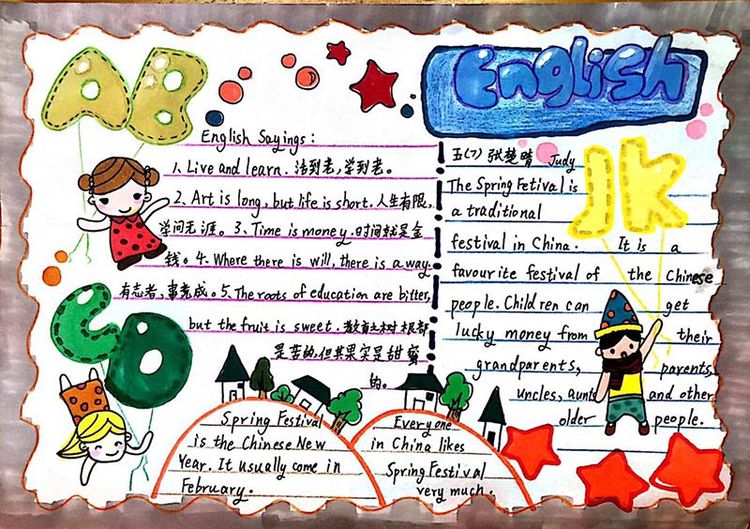 AB
English
English Sayings:
1. Live and learn. 活到老,学到老。
2. Art is long, but life is short. 人生有限,
学问无涯。3. Time is money. 时间就是金
钱。4. Where there is will, there is a way.
有志者,事竟成。5. The roots of education are bitter,
but the fruit is sweet. 教育之树根部
是苦的,但其果实是甜蜜
的。
CD
Spring Festival
is the Chinese New
Year. It usually come in
February.
Everyone
in China likes
Spring Festival
very much.
五(7) 张楚晴 Judy
JK
The Spring Fetival is
a traditional
festival in China. It is a
favourite festival of the Chinese
people. Children can get
lucky money from their
grandparents, parents,
uncles, aunt and other
older people.